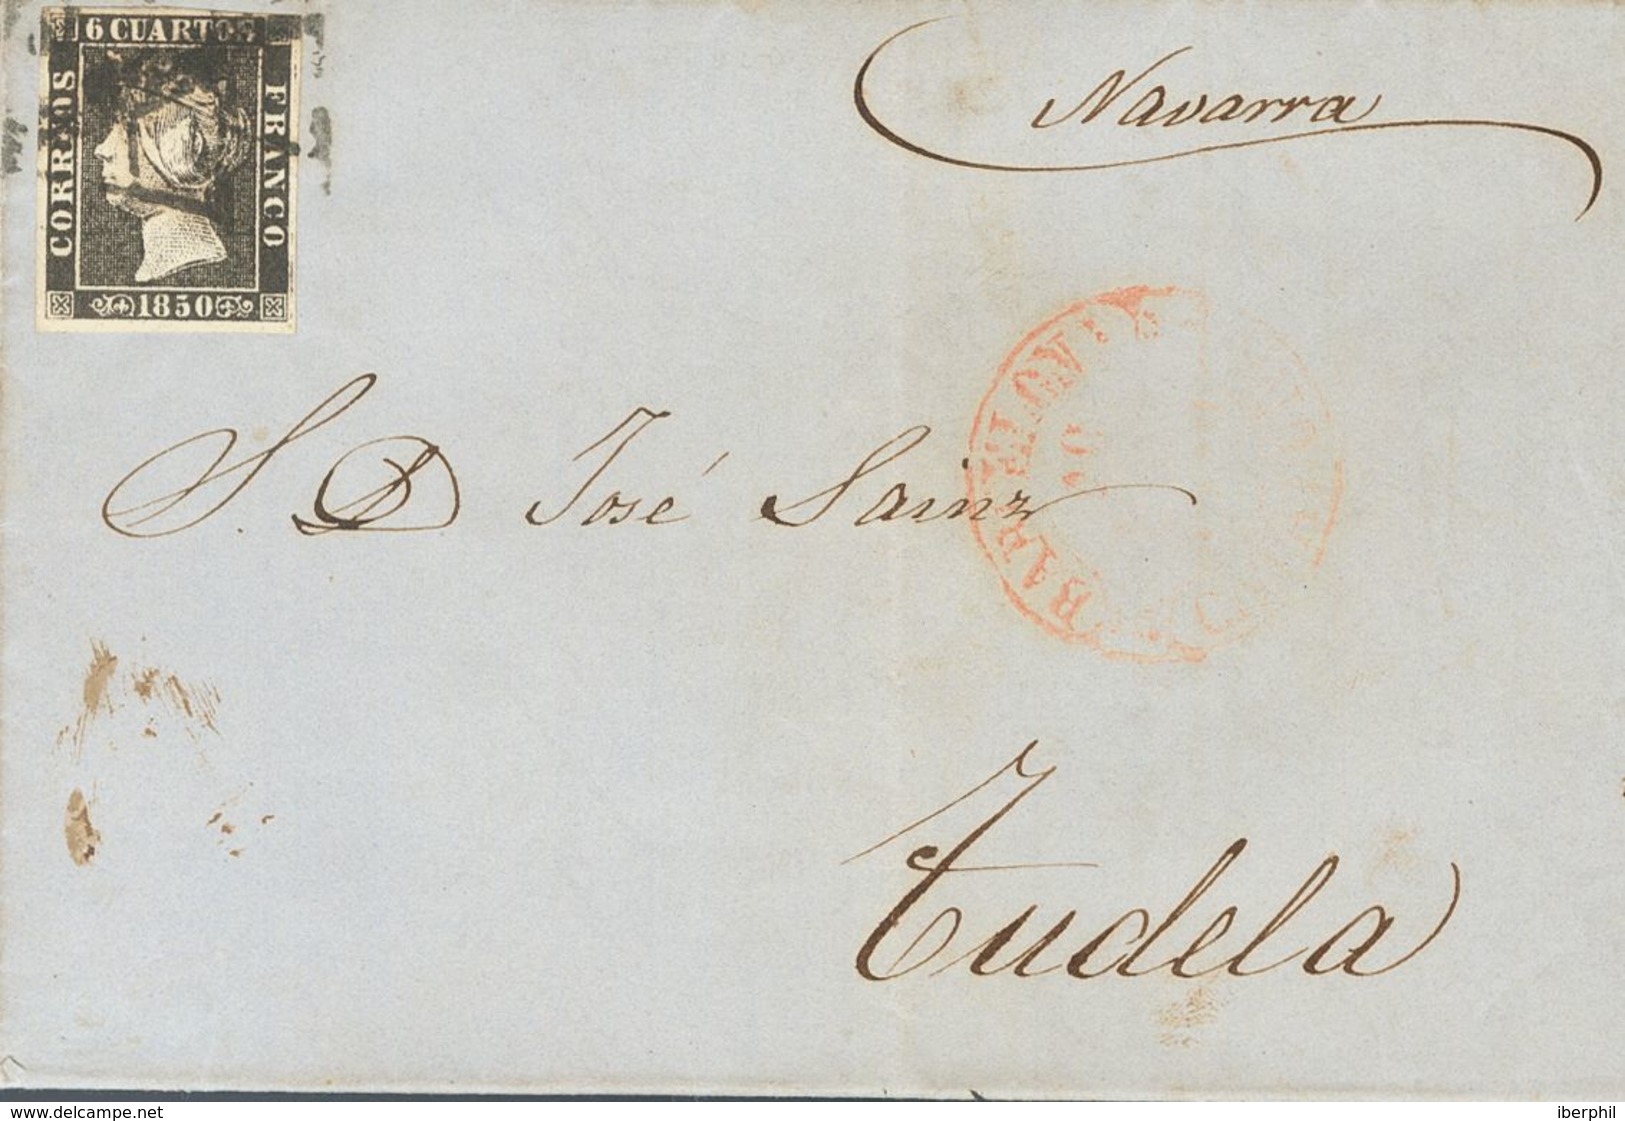 6 CUARTOS
CORREOS
FRANCO
1850
Navarra
S. D. José Sainz
BARCELONA
Tudela
www.delcampe.net
iberphil